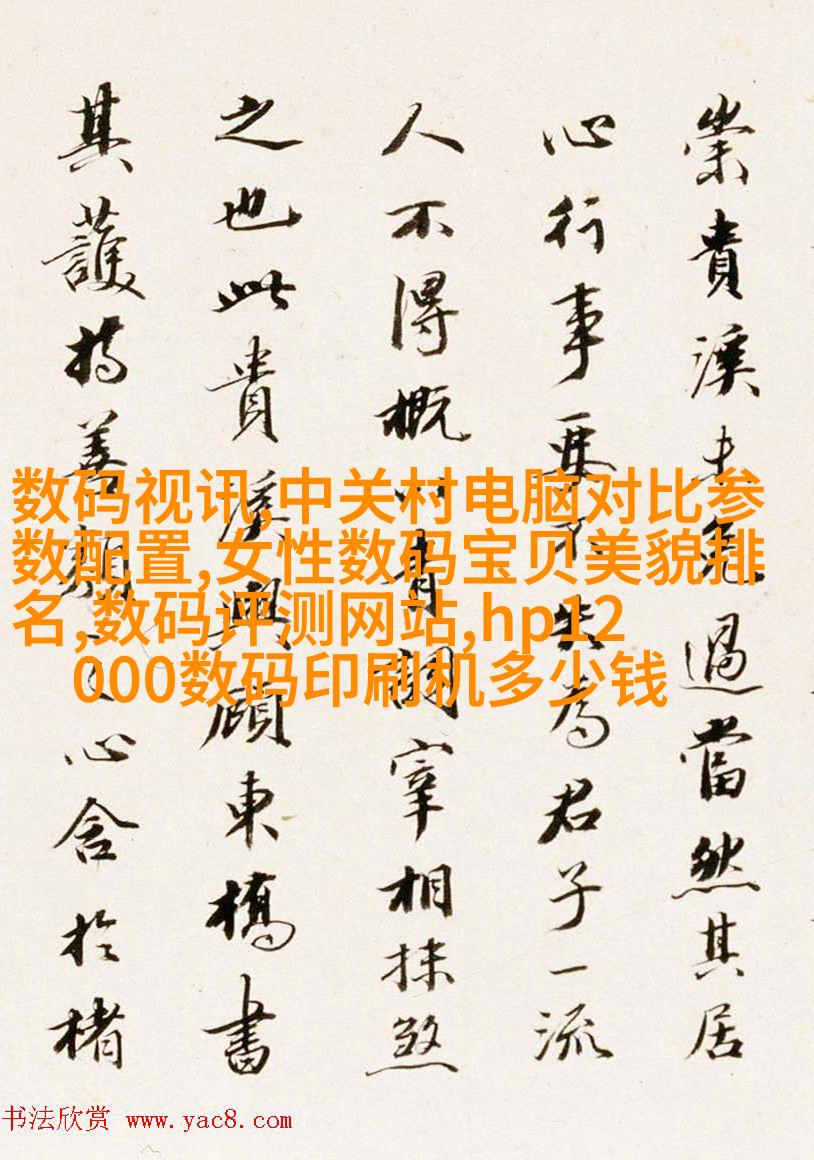 崇貴溪未免過當然其居
心行事要不失為君子一流
人不得概以青詞宰相抹煞
之也此貴溪與顧東橋書
其護持善類之心含於楮
数码视讯,中关村电脑对比参
数配置,女性数码宝贝美貌排
名,数码评测网站,hp12
000数码印刷机多少钱
书法欣赏 www.yac8.com